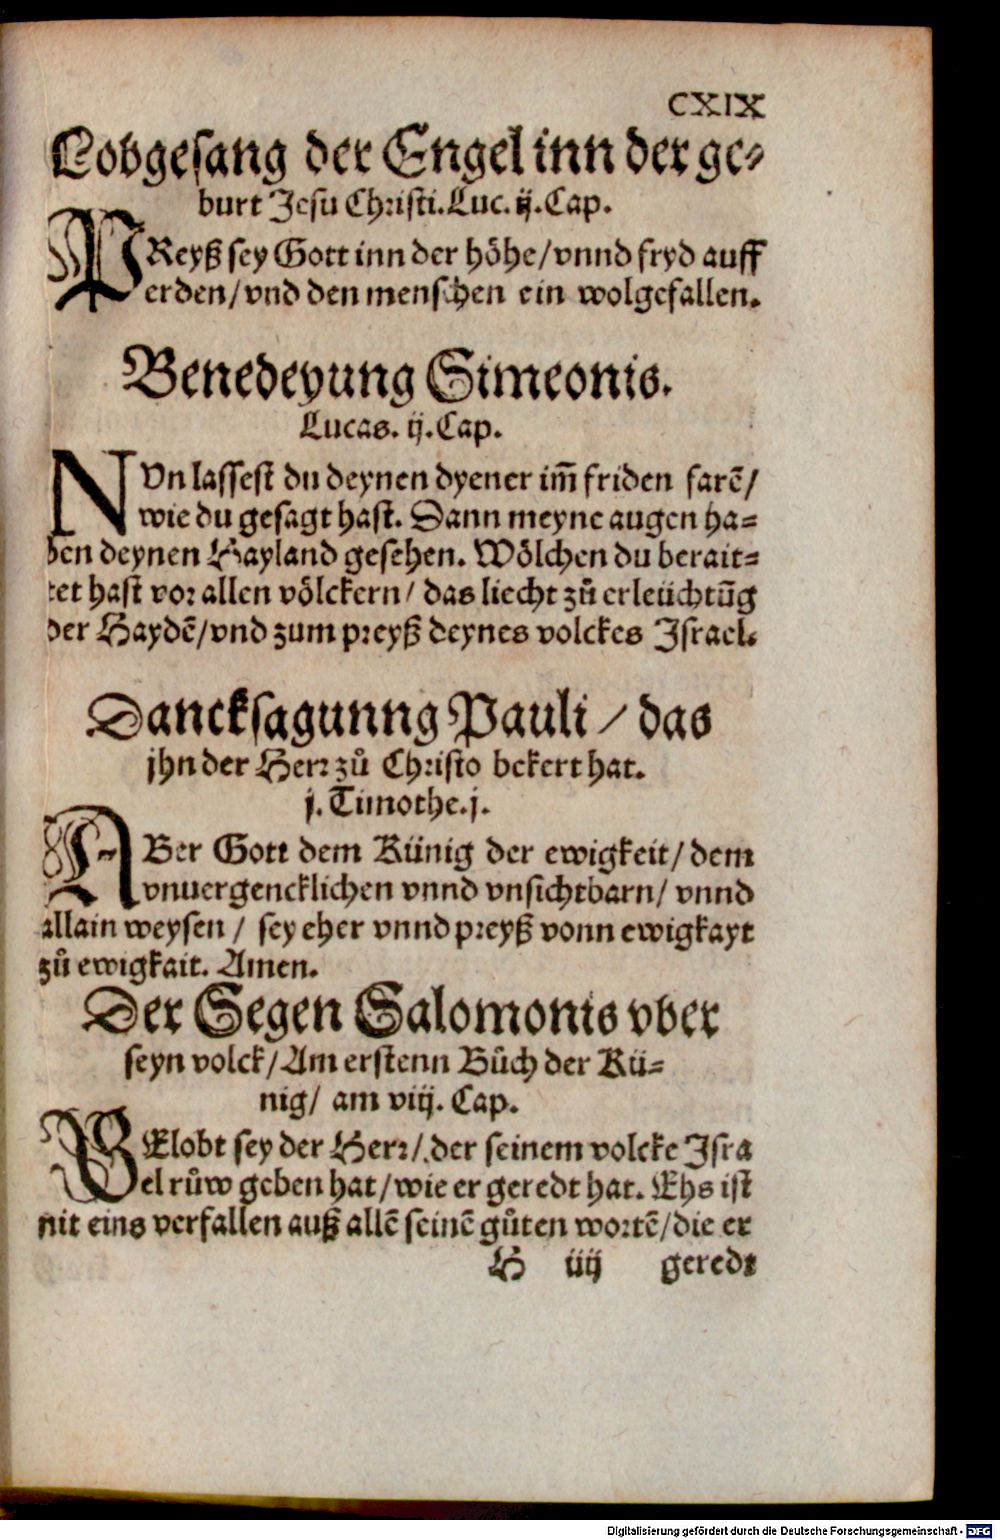 CXIX
Lobgesang der Engel inn der ge-
burt Jesu Christi. Luc. ij. Cap.
PReyß sey Gott inn der höhe/ vnnd fryd auff
erden/ vnd den menschen ein wolgefallen.
Benedeyung Simeonis.
Lucas. ij. Cap.
NVn lassest du deynen dyener im̃ friden farẽ/
wie du gesagt hast. Dann meyne augen ha-
ben deynen Hayland gesehen. Wölchen du berait-
tet hast vor allen völckern/ das liecht zů erleüchtũg
der Haydẽ/ vnd zum preyß deynes volckes Israel.
Dancksagunng Pauli / das
jhn der Herr zů Christo bekert hat.
j. Timothe. j.
ABer Gott dem Künig der ewigkeit/ dem
vnuergencklichen vnnd vnsichtbarn/ vnnd
allain weysen / sey eher vnnd preyß vonn ewigkayt
zů ewigkait. Amen.
Der Segen Salomonis vber
seyn volck/ Am erstenn Bůch der Kü-
nig/ am viij. Cap.
GElobt sey der Herr/ der seinem volcke Isra
el růw geben hat/ wie er geredt hat. Ehs ist
nit eins verfallen auß allẽ seinẽ gůten wortẽ/ die er
H iiij geredt
Digitalisierung gefördert durch die Deutsche Forschungsgemeinschaft - DFG